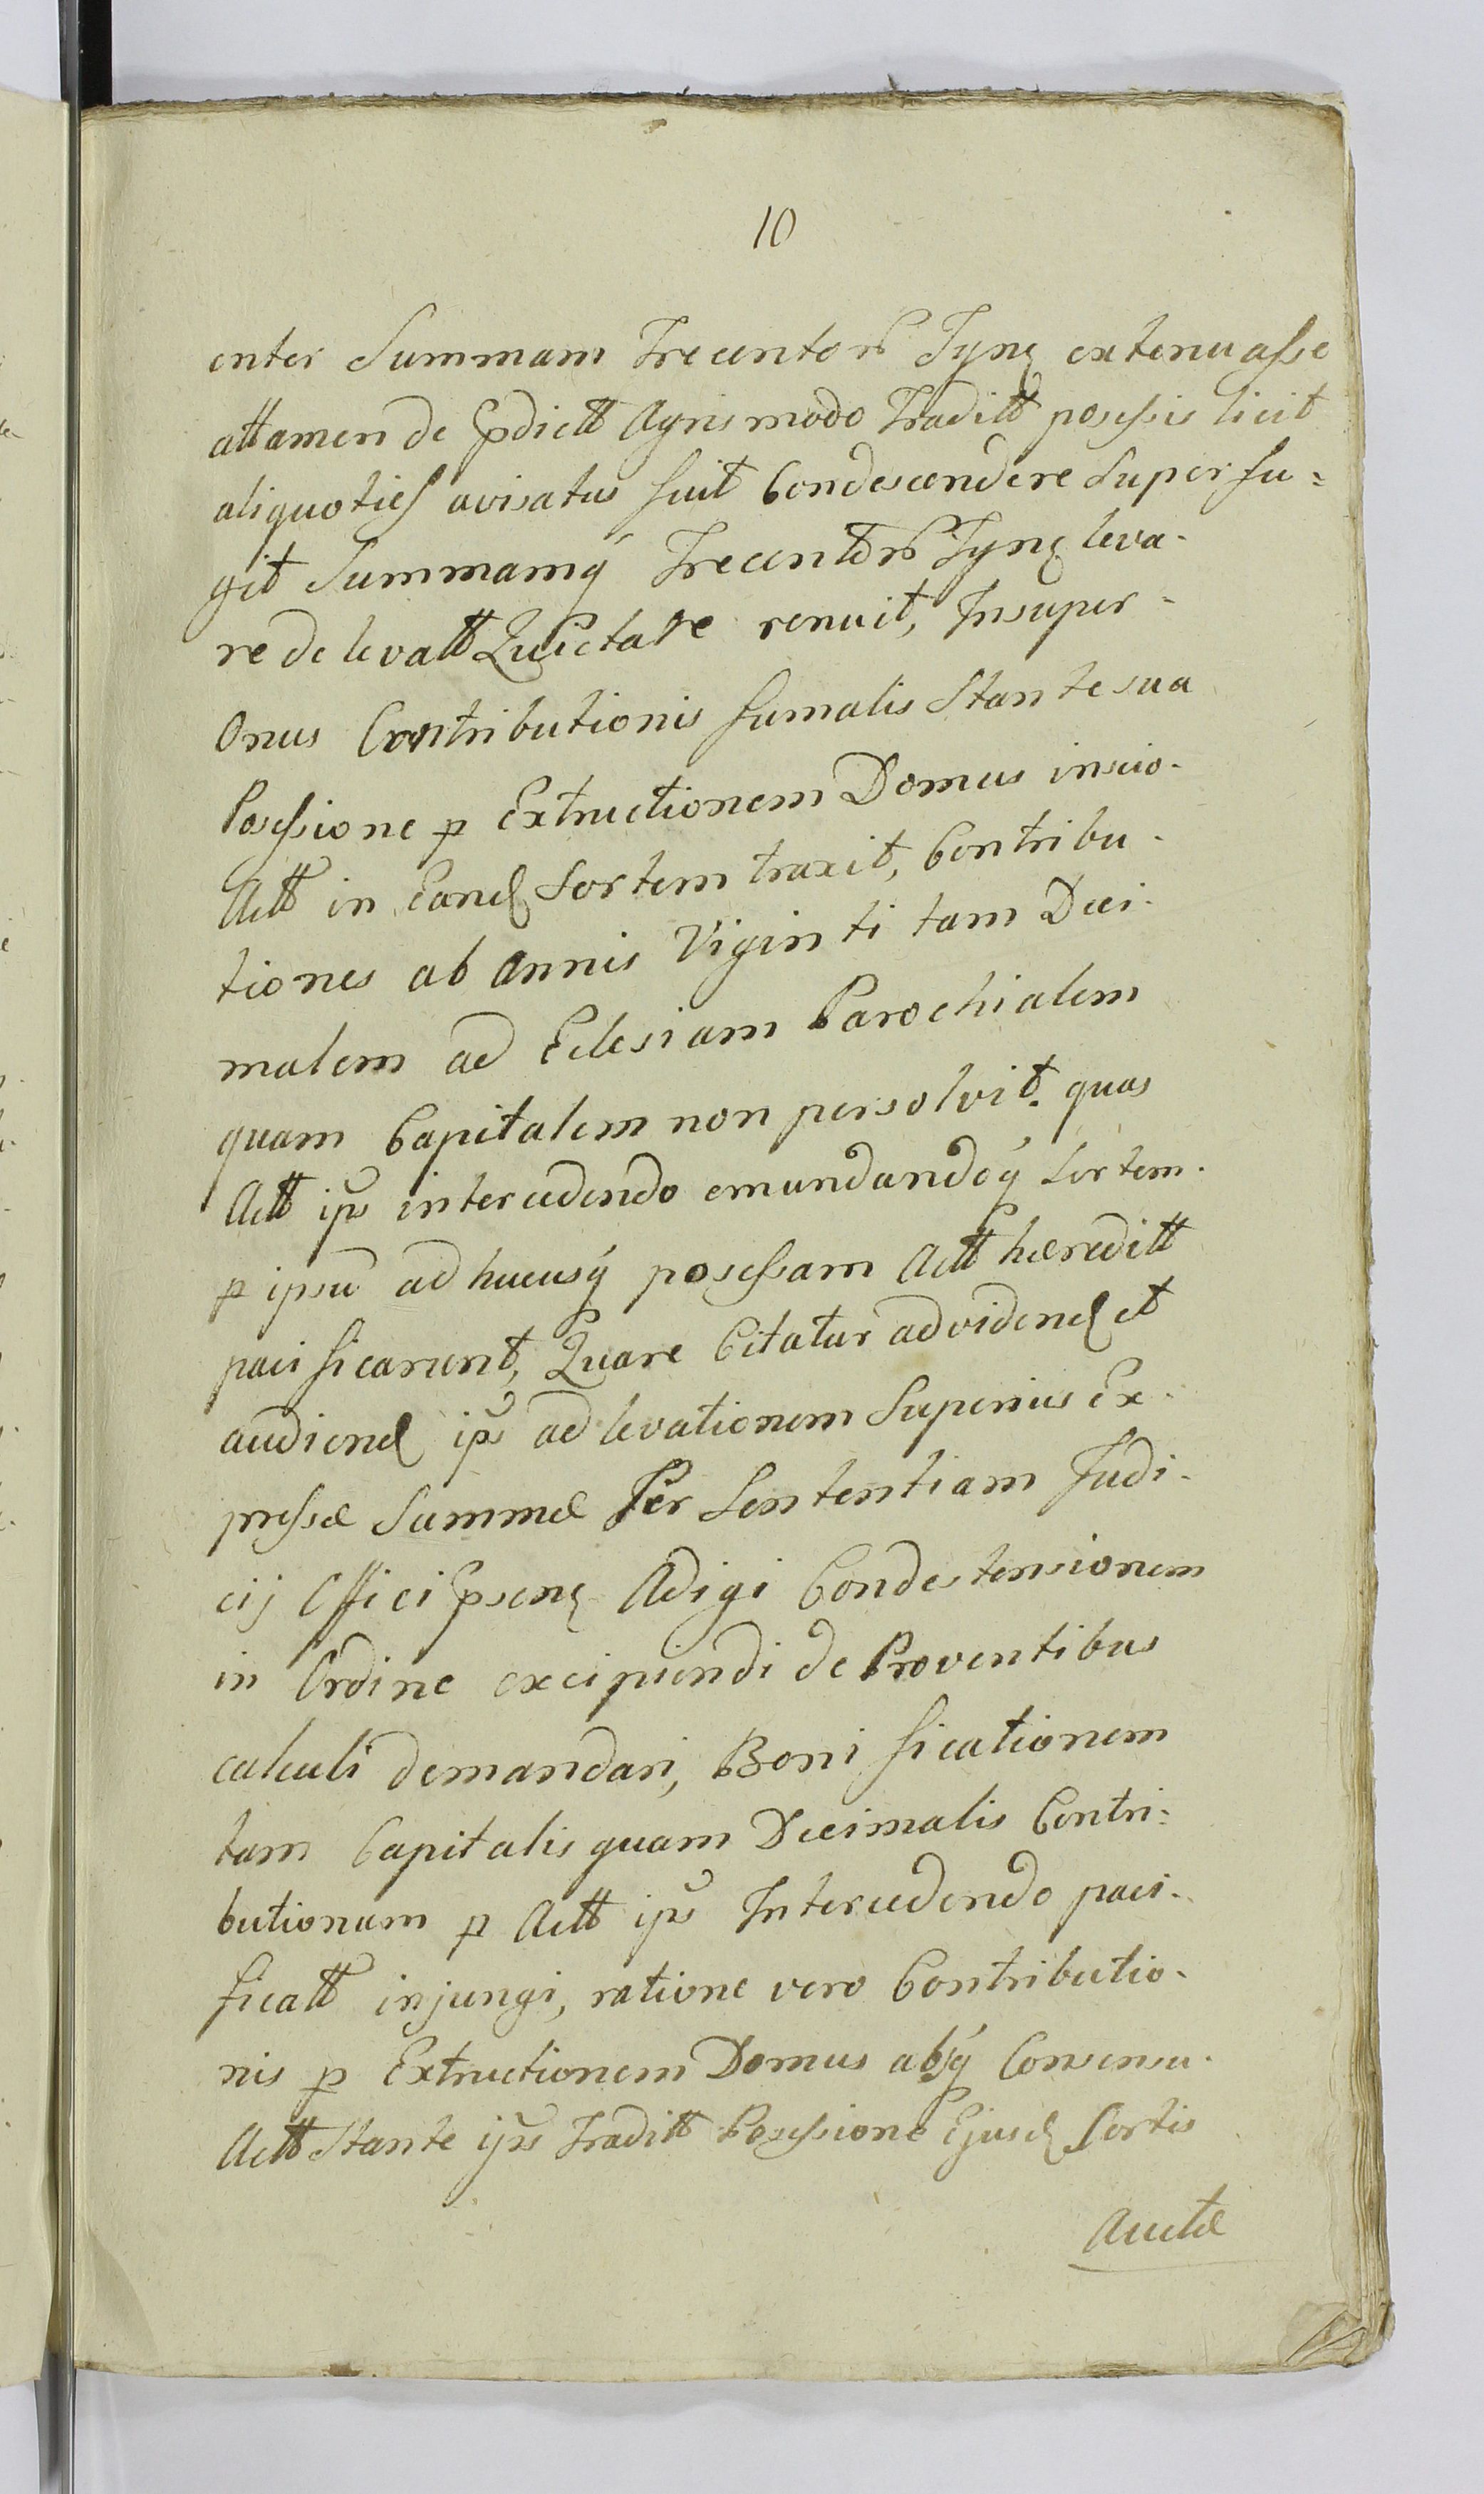 10
enter Summam Trecentorũ Tynę extenuasse
attamen de Prdictt Agris modo Traditt possessis licit
aliquoties avisatus fuit Condescendere Superfu=
git Summamq́ Trecentorũ Tynę leva-
re de levatt Quietare renuit, Insuper-
Onus Contributionis fumalis Stante sua
Possessione p Extructionem Domus inscio-
Actt in Eand Sortem traxit, Contribu-
tiones ab Annis Viginti tam Deci-
malem ad Eclesiam Parochialem
quam Capitalem non persolvit. quas
Actt ips intercedendo emundandoq́ Sortem.
p ipsũ ad hucusq́ possessam Actt hæreditt
pacificarunt, Quare Citatur ad videnđ et
audienđ ips ad levationem Superius Ex-
pressæ Summæ Per Sententiam Judi-
cij Offici Prsenę Adigi Condestensionem
in Ordine excipiendi de Proventibus
calculi demandari, Bonificationem
tam Capitalis quam Decimalis Contri-
butionum p Actt ips Intercedendo paci-
ficatt injungi, ratione vero Contributio-
nis p Extructionem Domus absq́ Consensu-
Actt Stante ips Traditt Possessione Ejusđ Sortis
Auctæ